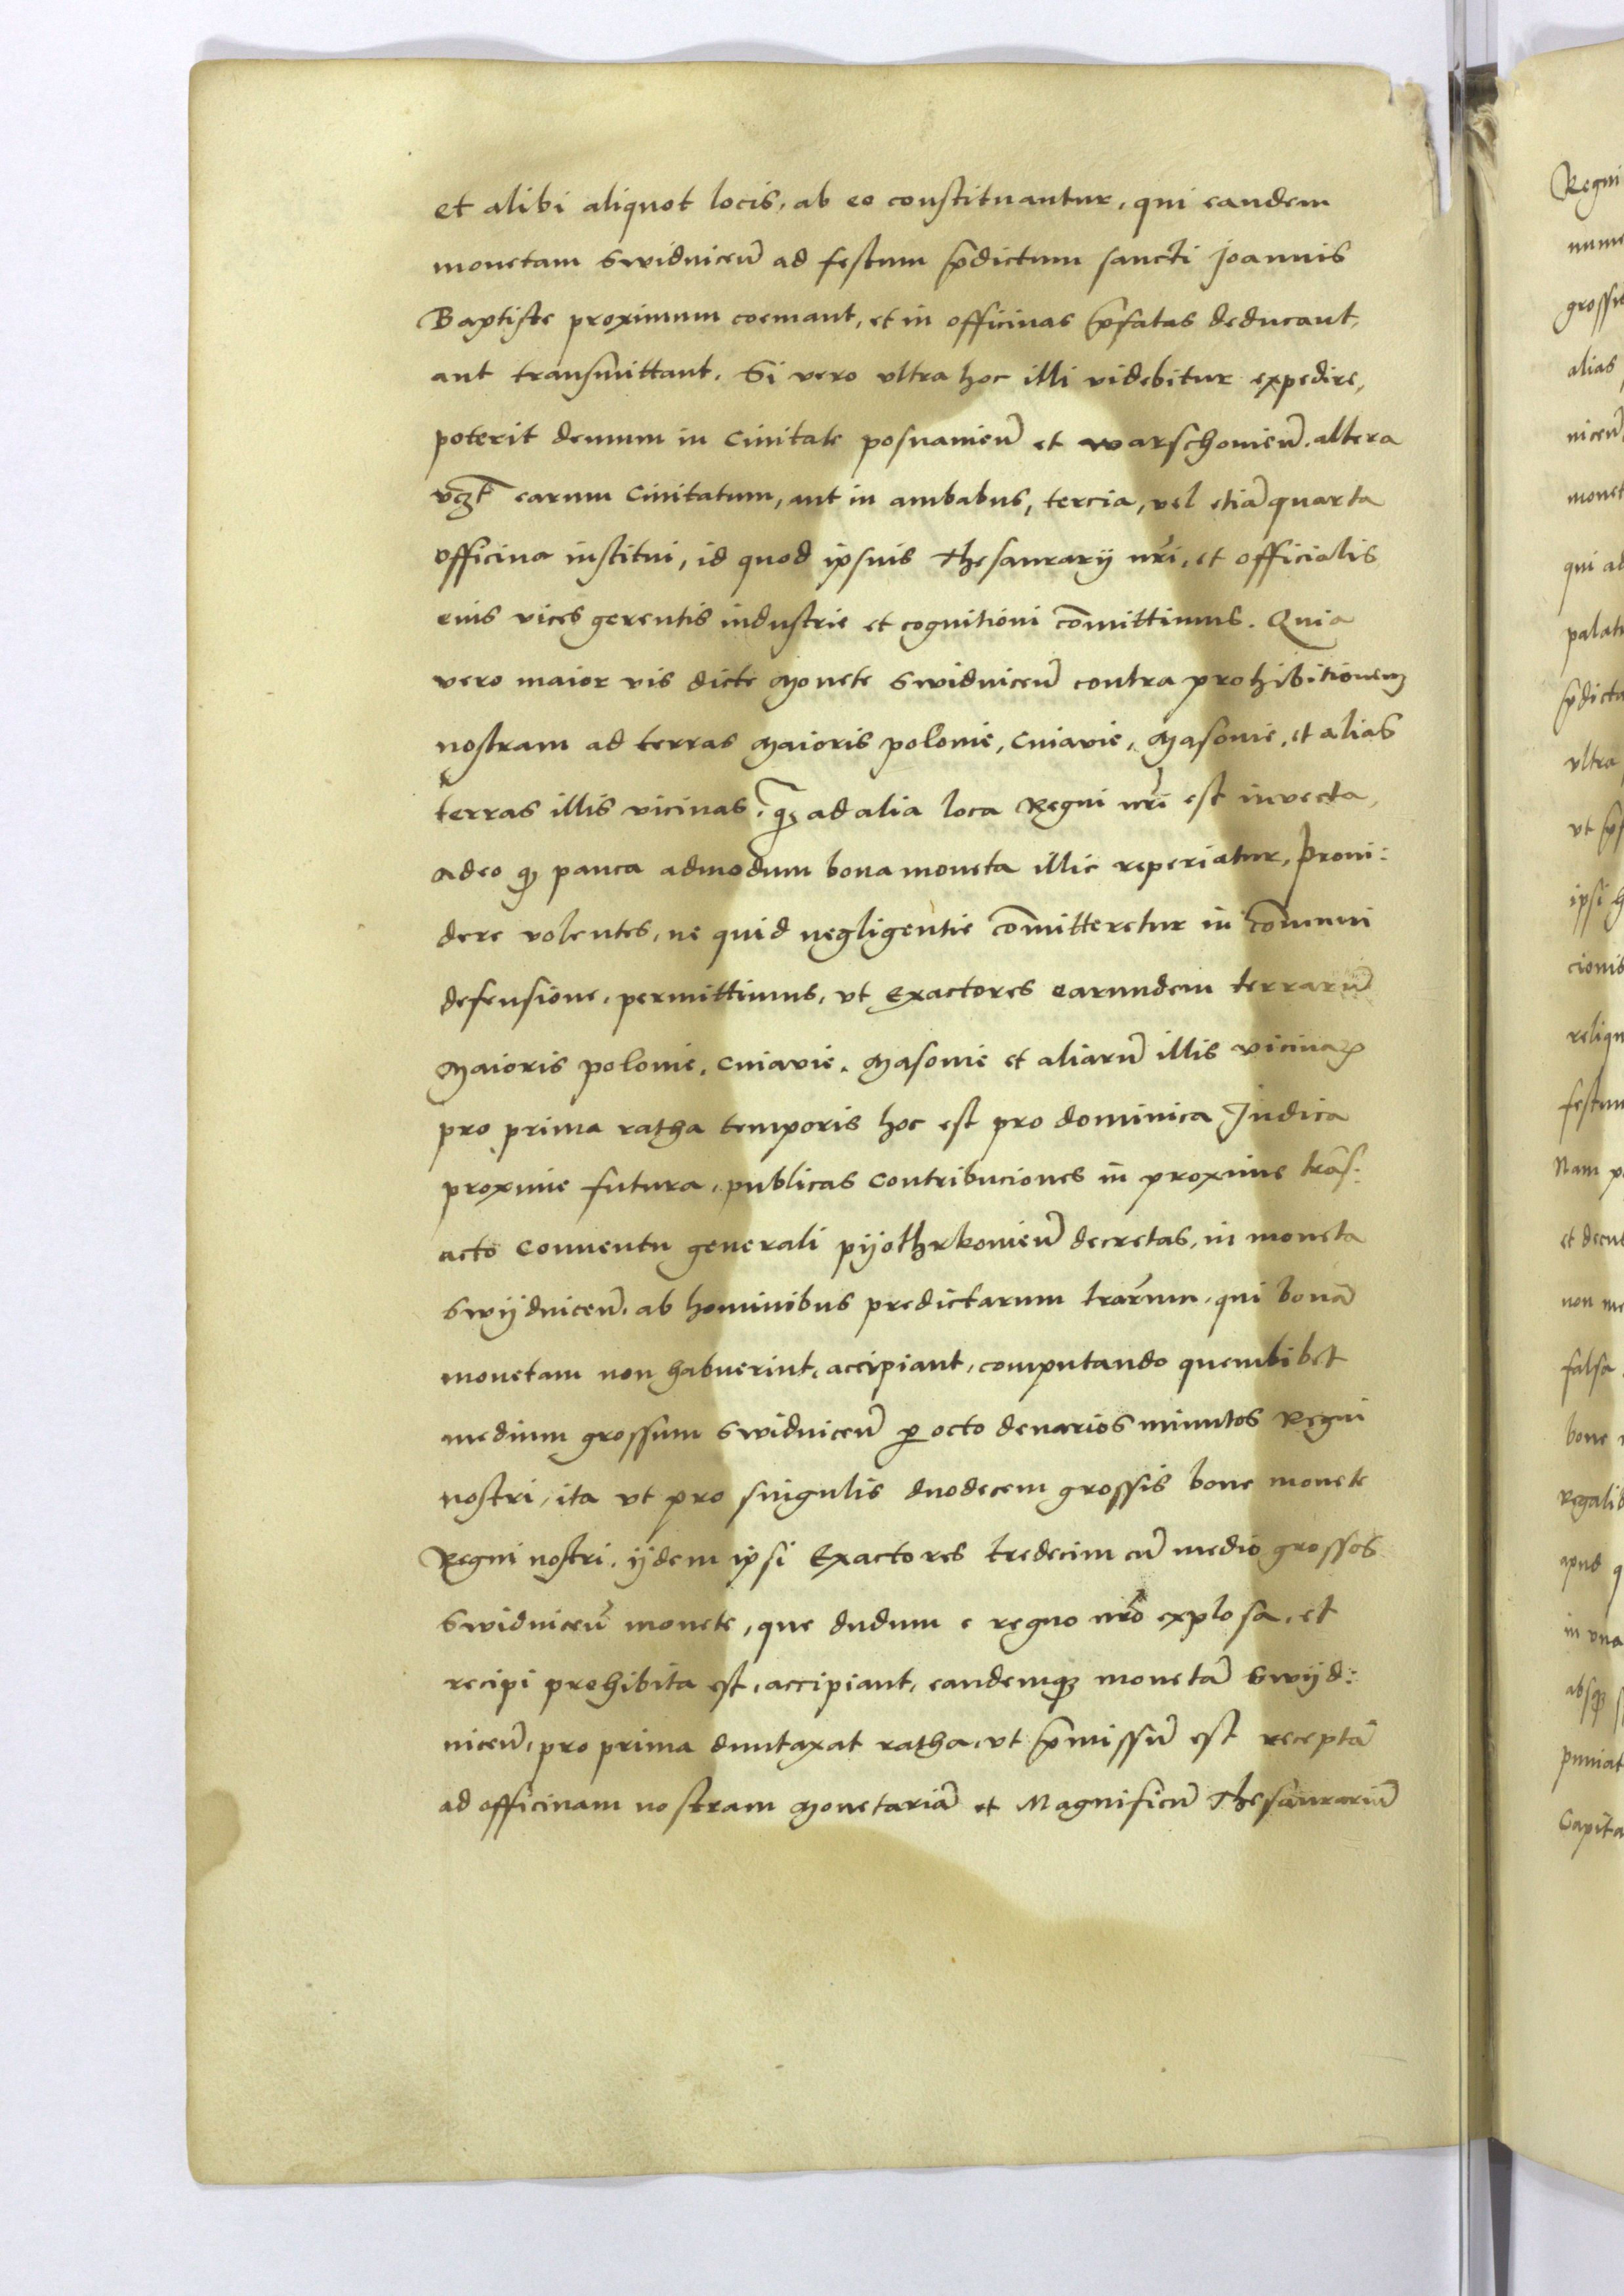 et alibi aliquot locis, ab eo constituantur, qui eandem
monetam Swidniceñ ad festum p̄dictum sancti Joannis
Baptiste proximum coemant, et in officinas p̄fatas deducant,
aut transmittant. Si vero vltra hoc illi videbitur expedire,
poterit demum in Ciuitate posnanieñ et warschouieñ. altera
vcꝫt earum Ciuitatum, aut in ambabus, tercia, vel etiā quarta
officina institui, id quod ipsius Thesaurarij nr̄i, et officialis
eius vices gerentis industrie et cognitioni cōmittimus. Quia
vero maior vis dicte Monete Swidniceñ contra prohibitionem
nostram ad terras Maioris polonie, Cuiavie, Masouie, et alias
terras illis vicinas, qꝫ ad alia loca Regni nr̄i est invecta,
adeo qꝫ pauca admodum bona moneta illic reperiatur, Proui:
dere volentes, ne quid negligentie cōmitteretur in cōmuni
defensione, permittimus, vt Exactores earundem terrarū
Maioris polonie, Cuiavie, Masouie et aliarū illis vicinaꝝ
pro prima ratha temporis hoc est pro dominica Judica
proxime futura, publicas Contribuciones in proxime trās:
acto Conuentu generali pijothrkouieñ decretas, in moneta
Swijdniceñ, ab hominibus predictarum trārum, qui bonā
monetam non habuerint, accipiant, computando quemlibet
medium grossum Swidniceñ ꝑ octo denarios minutos Regni
nostri, ita vt pro singulis duodecem grossis bone monete
Regni nostri, ijdem ipsi Exactores tredecim cū medio grossos
Swidniceñ monete, que dudum e regno nr̄o explosa, et
recipi prohibita est, accipiant, eandemqꝫ monetā Swijd:
niceñ, pro prima duntaxat ratha, vt p̄missū est receptā
ad officinam nostram Monetariā et Magnificū Thesaurariū
Regni
grossis
alias
niceñ
monet
qui ad
p̄dicta
vltra
ipsi
cionis
festum
Nam
non
falsa
bone
in vna
absqꝫ
puniat